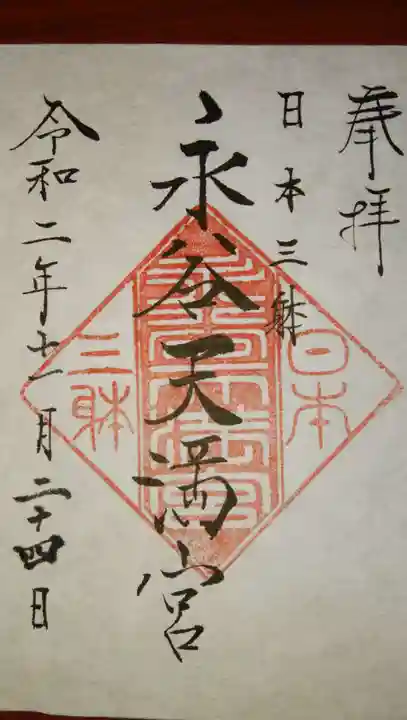 奉拝
日本三躰
永谷天満宮
令和二年十一月二十四日
日本
三躰